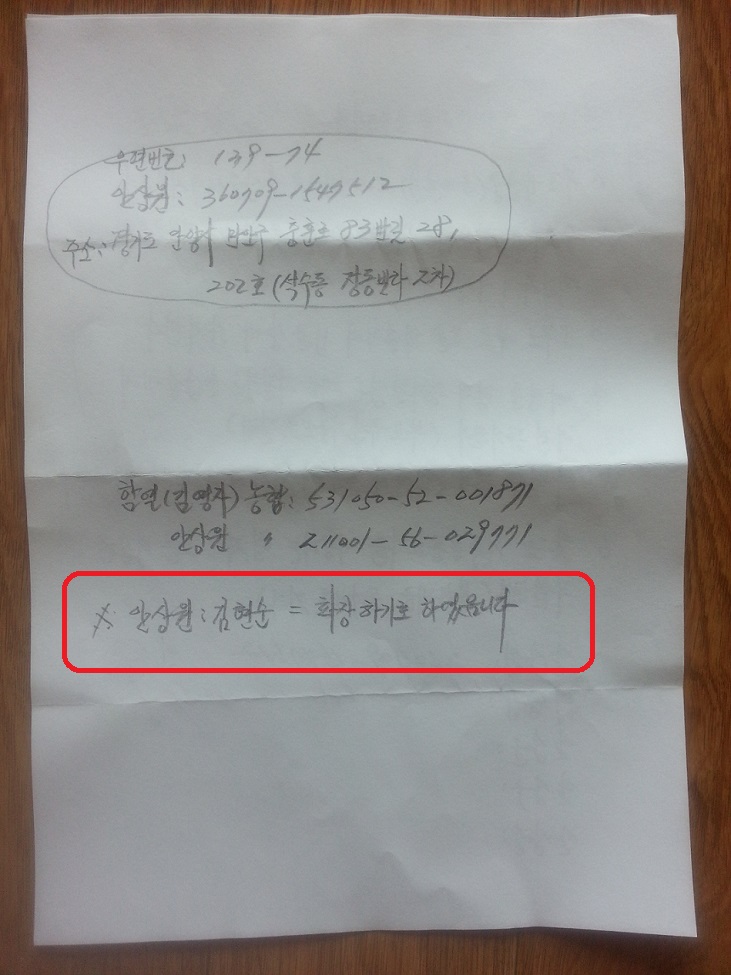 우편번호: 139-74
안상원: 360709-1547512
주소: 경기도 안양시 만안구 충훈로 83번길 28,
202호 (석수동 장동빌라 2차)
함열(김영자) 농협: 531050-52-001871
안상원 〃 211001-56-029771
※ 안상원: 김현순 = 화장하기로 하였읍니다